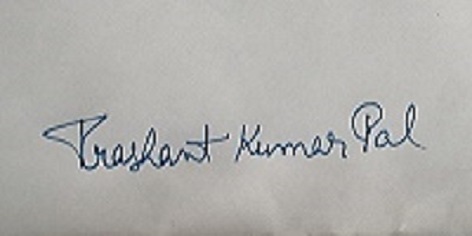 Prashant Kumar Pal